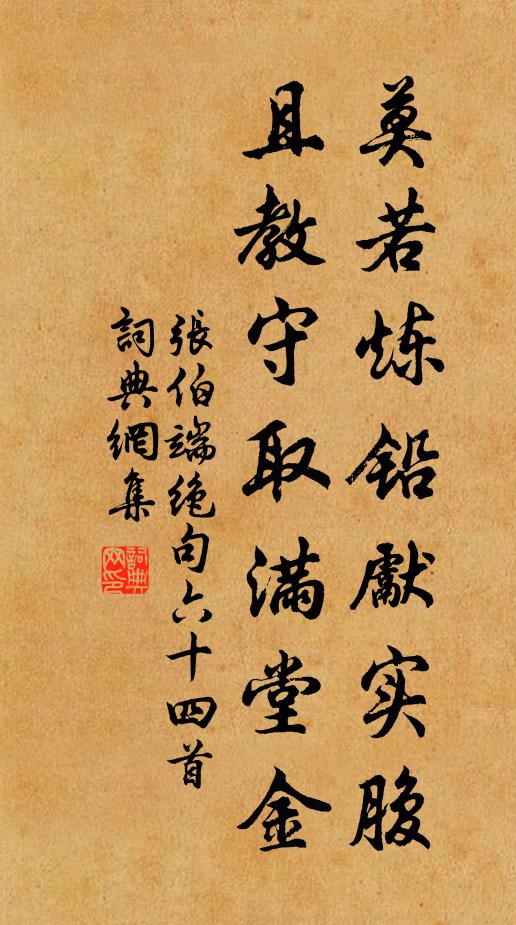 莫若炼铅獻实腹
且教守取滿堂金
張伯端绝句六十四首
詞典網集
詞典網印